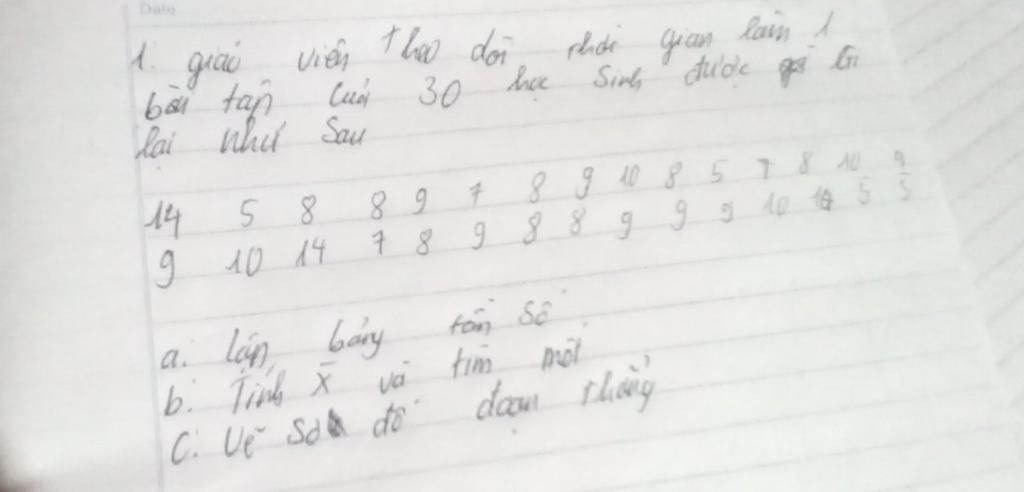 Date
1. giáo viên theo dõi thời gian làm 1
bài tập của 30 học sinh được ghi
lại như sau
14 5 8 8 9 7 8 9 10 8 5 7 8 10 9
9 10 14 7 8 9 8 8 9 9 9 10 14 5 5
a. lập bảng tần số
b. Tính X̄ và tìm mốt
C. Vẽ sơ đồ đoạn thẳng